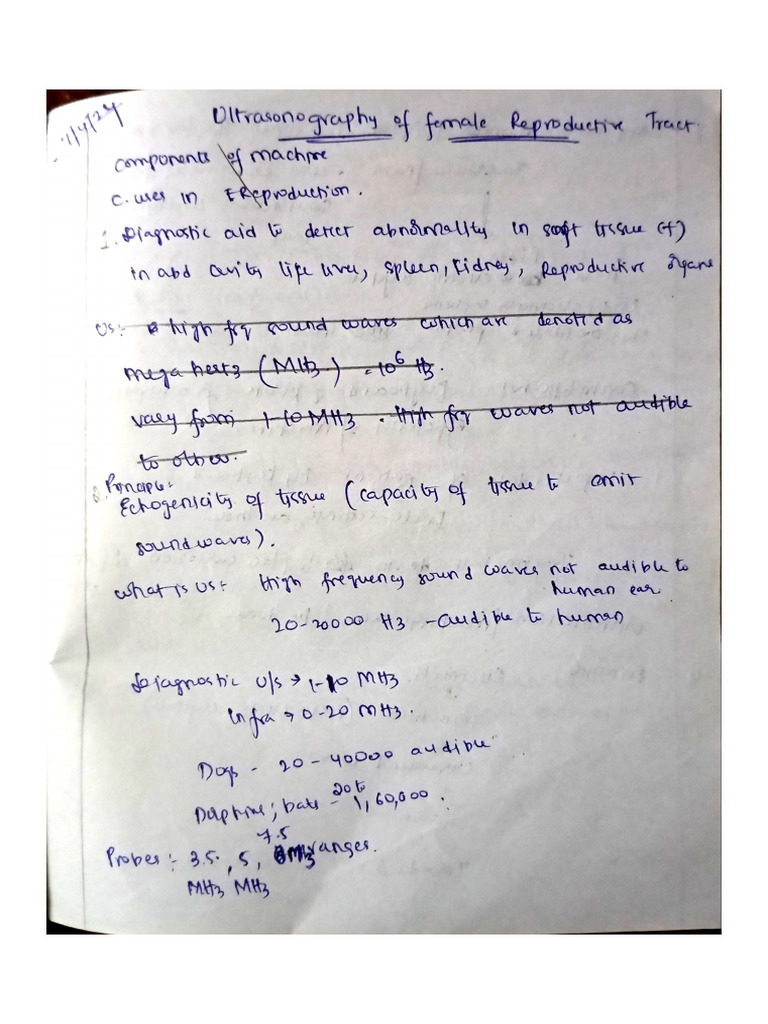 1/4/24
Ultrasonography of female Reproductive Tract.
components of machine
c. uses in Reproduction.
1. Diagnostic aid to detect abnormality in soft tissue (+)
in abd cavity like liver, spleen, Kidney, Reproductive organs
Us: high frq sound waves which are denoted as
mega hertz (MHz) = 10⁶ Hz.
vary from 1-10 MHz. High frq waves not audible
to other.
2. Principle:
Echogenicity of tissue (capacity of tissue to emit
soundwaves).
What is us: High frequency sound waves not audible to
human ear
20-20000 Hz - audible to human
Diagnostic u/s → 1-10 MHz
Infra → 0-20 MHz.
Dogs - 20 - 40000 audible
Dolphine; bats - 20 to 1,60,000.
Probes :- 3.5, 5, 7.5 MHz ranges.
MHz MHz